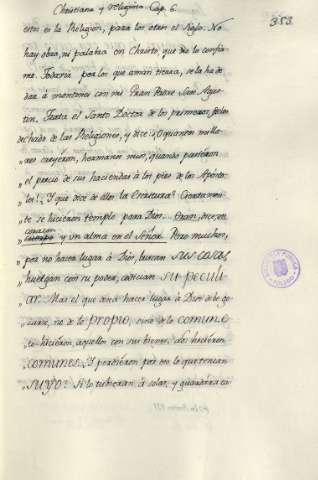 Christiana y religiosa. Cap. 6
353
esto es la Religion, para los otros el Siglo. No
hay obra, ni palabra en Christo, que no lo confir-
me. Todavia por los que aman tierra, se la ha de
dar á montones con mi Gran Padre San Agus-
tin. Trata el Santo Doctor de los primeros fieles
dechado de las Religiones, y dice: ¿Quantos milla-
res creyeron, hermanos mios, quando pusieron
el precio de sus haciendas á los pies de los Aposto-
les? ¿Y que dice de ellos la Escritura? Ciertamen-
te se hicieron templo para Dios. Eran, dice, un
corazon
y un alma en el Señor. Pero muchos,
por no hacer lugar á Dios, buscan sus cosas,
huelgan con su poder, codician su pecul
iar. Mas el que ama hacer lugar á Dios debe go-
zarse, no de lo propio, sino de lo comun. Es-
to hicieron aquellos con sus bienes. Los hicieron
comunes. ¿Y perdieron por eso lo que tenian
suyo? Si lo tubieran á solas, y guardara ca